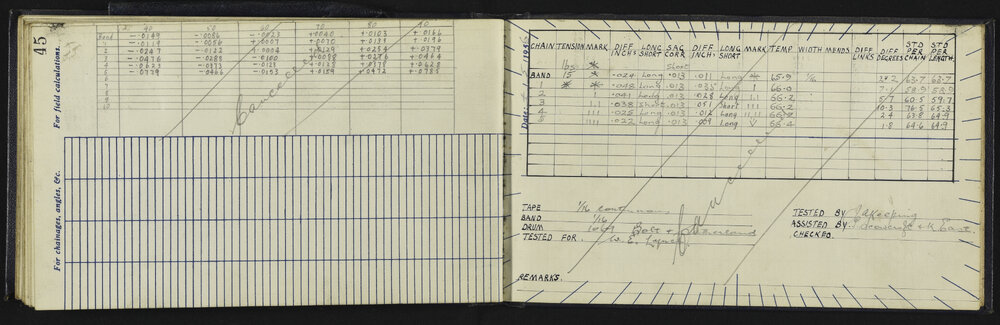 45
For field calculations.
For chainages, angles, &c.
40 50 60 70 80 90
Band -.0149 -.0086 -.0023 +.0040 +.0103 +.0166
1 -.0119 -.0056 +.0007 +.0070 +.0196
2 -.0247 -.0122 +.0129 +.0254 +.0379
3 -.0476 -.0288 -.0100 +.0088 +.0276 +.0464
4 -.0623 -.0373 +.0378 +.0628
5 -.0779 -.0466 -.0153 +.0159 +.0472 +.0785
6
7
8
9
10
Cancelled
Date
CHAIN TENSION MARK DIFF INCHS LONG SHORT SAG CORR DIFF. INCH. LONG SHORT MARK TEMP WIDTH MENDS. DIFF LINKS DIFF DEGREES STD PER CHAIN STD PER LENGTH.
lbs Short
BAND 15 .024 Long .013 .011 Long 65.9 1/16 2.2 63.7 63.7
1 Long .013 Long 1 66.0 7.1 58.9 58.9
2 1 .041 Long .013 .028 Long 1.1 66.2 5.7 60.5 59.7
3 1.1 .038 Short .013 .051 Short 111 66.2 10.3 76.5 65.3
4 111 .025 Long .013 .012 Long 66.2 2.4 63.8 64.9
5 1111 .022 Long .013 .009 Long V 66.4 1.8 64.6 64.9
Cancelled
TAPE 1/16 continuous
BAND 1/16
DRUM 1069 Bolt & Sutherland
TESTED FOR. W. E. Lynch
TESTED BY J A Keeping
ASSISTED BY. & K. East
CHECKED.
REMARKS.